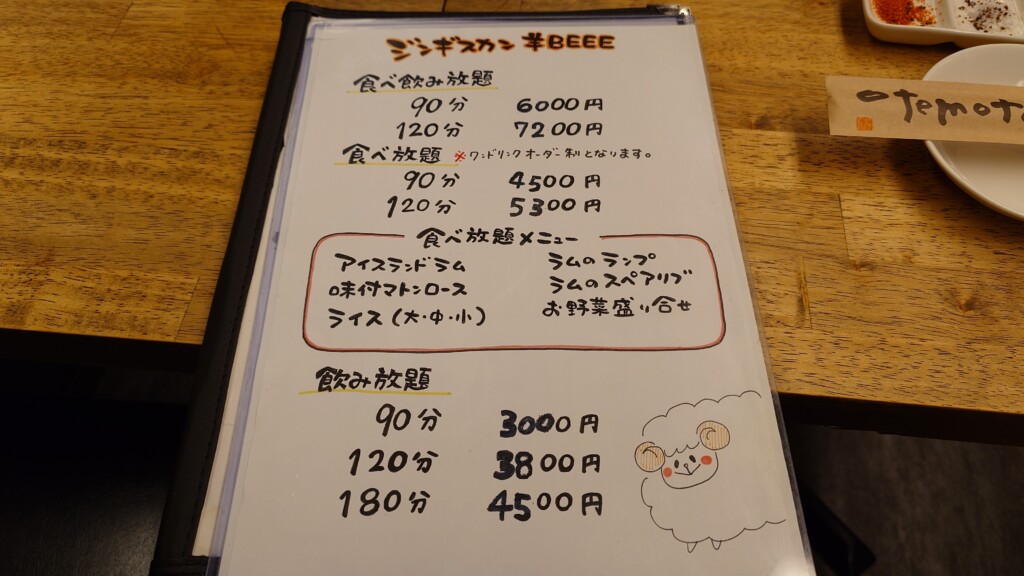 ジンギスカン 羊BEEE
食べ飲み放題
90分 6000円
120分 7200円
食べ放題 ※ワンドリンクオーダー制となります。
90分 4500円
120分 5300円
食べ放題メニュー
アイスランドラム ラムのランプ
味付マトンロース ラムのスペアリブ
ライス(大・中・小) お野菜盛り合せ
飲み放題
90分 3000円
120分 3800円
180分 4500円